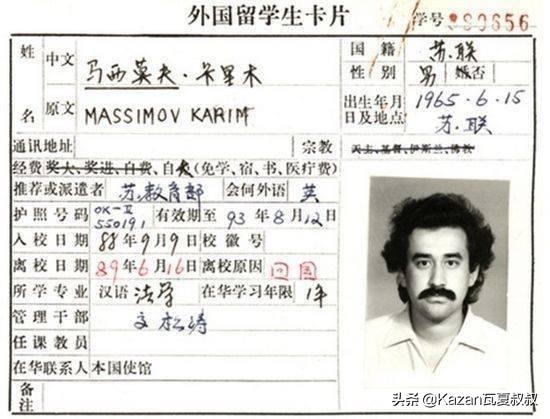 外国留学生卡片
学号
姓 中文 马西莫夫·卡里木
名 原文 MASSIMOV KARIM
国籍 苏.联
性别 男 婚否
出生年月日及地点 1965·6·15 苏.联
通讯地址 宗教 天主、基督、伊斯兰、佛教
经费 奖大、奖进、自费、自(免学、宿、书、医疗费)
推荐或派遣者 苏教育部 会何外语 英
护照号码 OK-II 550191 有效期至 93年8月12日
入校日期 88年9月9日 校徽号
离校日期 89年6月16日 离校原因 回国
所学专业 汉语 法学 在华学习年限 1年
管理干部 文松涛
任课教员
在华联系人 本国使馆
备注
头条 @Kazan瓦夏叔叔